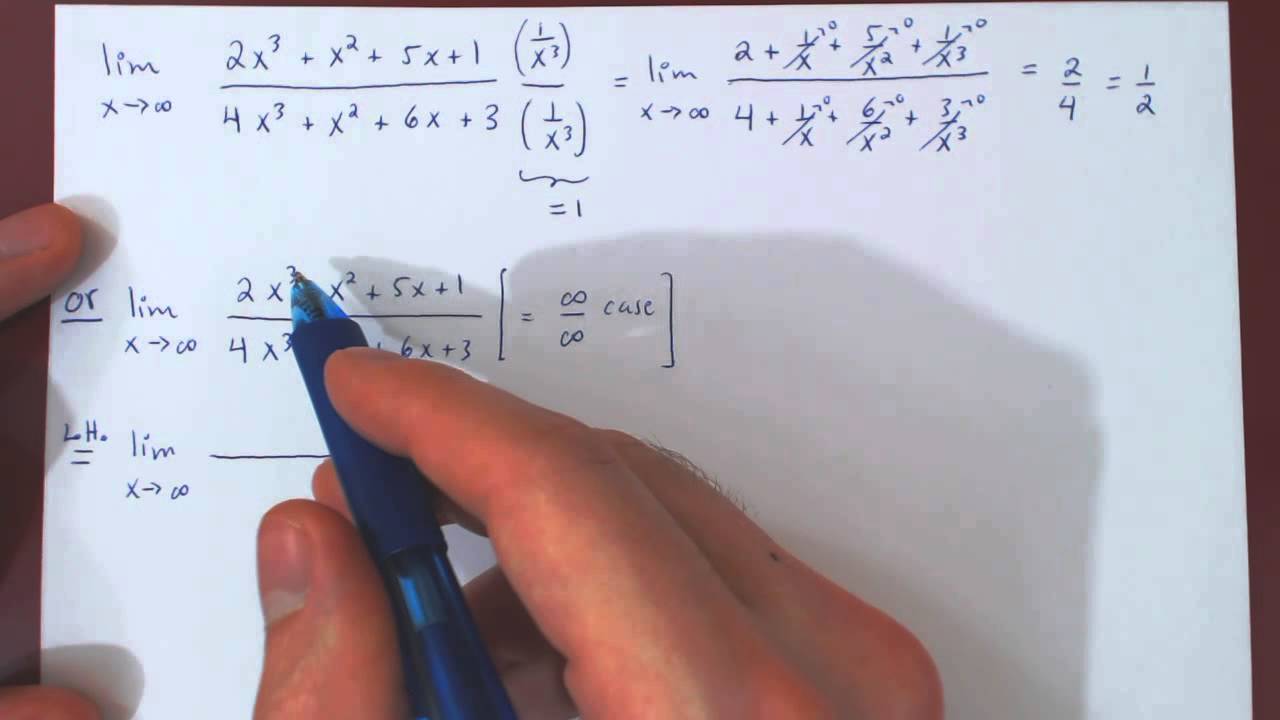 lim x→∞ (2x³ + x² + 5x + 1)/(4x³ + x² + 6x + 3) (1/x³)/(1/x³) = lim x→∞ (2 + 1/x→0 + 5/x²→0 + 1/x³→0)/(4 + 1/x→0 + 6/x²→0 + 3/x³→0) = 2/4 = 1/2
= 1
or lim x→∞ (2x³ x² + 5x + 1)/(4x³ + 6x + 3) [= ∞/∞ case]
L.H. = lim x→∞